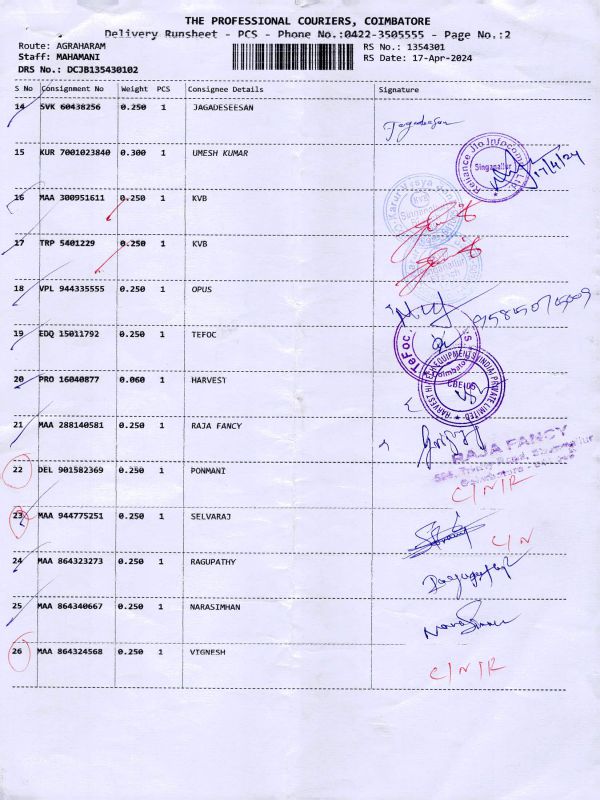 THE PROFESSIONAL COURIERS, COIMBATORE
Delivery Runsheet - PCS - Phone No.:0422-3505555 - Page No.:2
Route: AGRAHARAM RS No.: 1354301
Staff: MAHAMANI RS Date: 17-Apr-2024
DRS No.: DCJB135430102
S No Consignment No Weight PCS Consignee Details Signature
14 SVK 60438256 0.250 1 JAGADEESESAN Jagadeesan
15 KUR 7001023840 0.300 1 UMESH KUMAR Reliance Jio Infocomm LTD. Singanallur 17/4/24
16 MAA 300951611 0.250 1 KVB
17 TRP 5401229 0.250 1 KVB
18 VPL 944335555 0.250 1 OPUS
19 EDQ 15011792 0.250 1 TEFOC TeFOC
20 PRO 16040877 0.060 1 HARVEST HARVEST HI EQUIPMENTS (INDIA) PRIVATE LIMITED CBE-05
21 MAA 288140581 0.250 1 RAJA FANCY RAJA FANCY
22 DEL 901582369 0.250 1 PONMANI C/N/R
23 MAA 944775251 0.250 1 SELVARAJ C/N
24 MAA 864323273 0.250 1 RAGUPATHY
25 MAA 864340667 0.250 1 NARASIMHAN
26 MAA 864324568 0.250 1 VIGNESH C/N/R